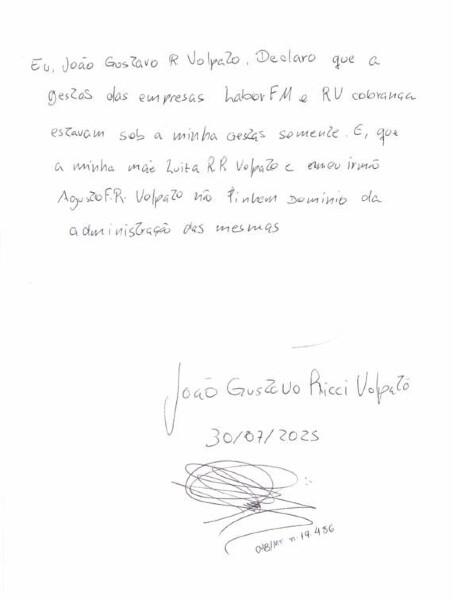 Eu, João Gustavo R Volpato, Declaro que a
gestão das empresas Labor FM e RV cobrança
estavam sob a minha gestão somente. E, que
a minha mãe Luiza R.R. Volpato e meu irmão
Agusto F.R. Volpato não tinham Domínio da
administração das mesmas
João Gustavo Ricci Volpato
30/07/2025
OAB/MT n. 19.486